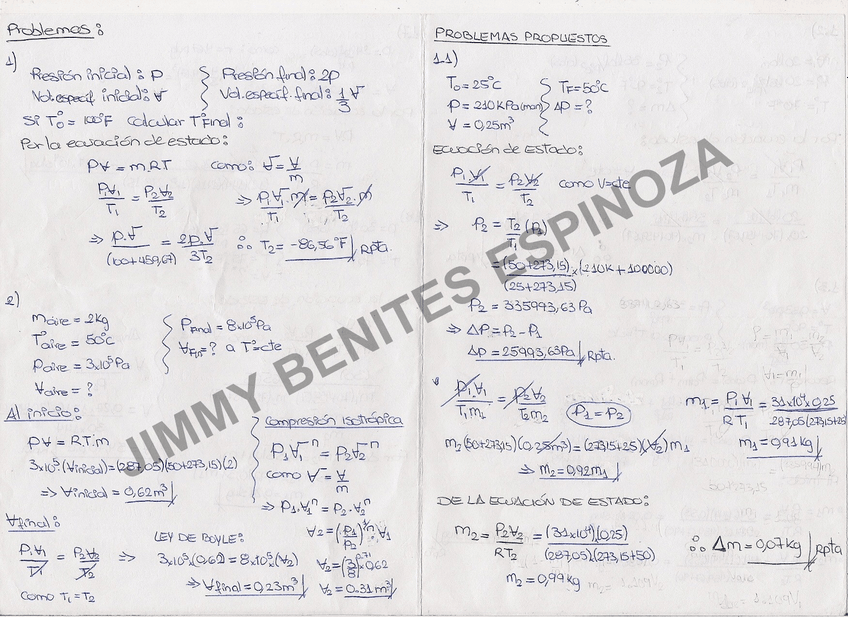 Problemas:
1)
Presión inicial: P
Vol. especif. inicial: ∀
Presión final: 2P
Vol. especif. final: 1/3 ∀
Si T°₀ = 100°F calcular T°Final:
Por la ecuación de estado:
P∀ = m.RT como: ∀ = ∀/m
P₁∀₁/T₁ = P₂∀₂/T₂ ⇒ P₁∀₁.m/T₁ = P₂∀₂.m/T₂
⇒ P.∀/(100+459,67) = 2P.∀/3T₂ ∴ T₂ = -86,56°F Rpta.
2)
maire = 2Kg
T°aire = 50°C
Paire = 3x10⁵Pa
∀aire = ?
Pfinal = 8x10⁵Pa
∀Fin = ? a T° = cte
Al inicio:
P∀ = R.T.m
3x10⁵.(∀inicial) = (287,05)(50+273,15)(2)
⇒ ∀inicial = 0,62m³
∀final:
P₁.∀₁/T₁ = P₂∀₂/T₂ ⇒
como T₁ = T₂
LEY DE BOYLE:
3x10⁵.(0,62) = 8x10⁵(∀₂)
⇒ ∀final = 0,23m³
Compresión isotrópica
P₁∀₁ⁿ = P₂∀₂ⁿ
como ∀ = ∀/m
⇒ P₁.∀₁ⁿ = P₂.∀₂ⁿ
∀₂ = (P₁/P₂)^1/n.∀₁
∀₂ = (3/8)^0.71 x0.62
∀₂ = 0.31m³
PROBLEMAS PROPUESTOS
1-1)
T₀ = 25°C
P = 210KPa(man)
∀ = 0,25m³
TF = 50°C
ΔP = ?
Ecuación de Estado:
P₁.∀₁/T₁ = P₂∀₂/T₂ como V=cte
⇒ P₂ = T₂/T₁ (P₁)
= (50+273,15)/(25+273,15) x (210K + 100000)
P₂ = 335993,63Pa
⇒ ΔP = P₂ - P₁
ΔP = 25993,63Pa Rpta.
P₁.∀₁/T₁m₁ = P₂∀₂/T₂m₂ P₁ = P₂
m₂(50+273,15)(0.25m³) = (273,15+25)(∀₂)m₁
⇒ m₂ = 0,92m₁
m₁ = P₁∀₁/RT₁ = 31x10⁴x0,25/287,05(273,15+25)
m₁ = 0,91kg
DE LA ECUACIÓN DE ESTADO:
m₂ = P₂∀₂/RT₂ = (31x10⁴)(0,25)/(287,05)(273,15+50)
m₂ = 0,99kg
∴ Δm = 0,07kg Rpta
JIMMY BENITES ESPINOZA